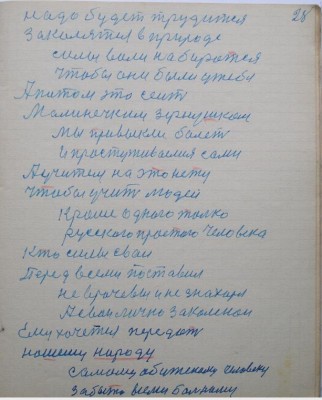 28
надо будет трудится
Закалятся в природе
силы воли набиратся
Чтобы они были у тебя
А потом это сеит
Малинечким зёрнушком
Мы привыкли болет
И простуживаемся сами
А учителя на это нету
Чтобы учит людей
Кроме одного только
русского простого Человека
Кто силы свои
Перед всеми поставил
не врачевы и не знахаря
А свои лично Закаленои
Ему хочется передат
нашему народу
самому обиженому человеку
Забыто всеми больному